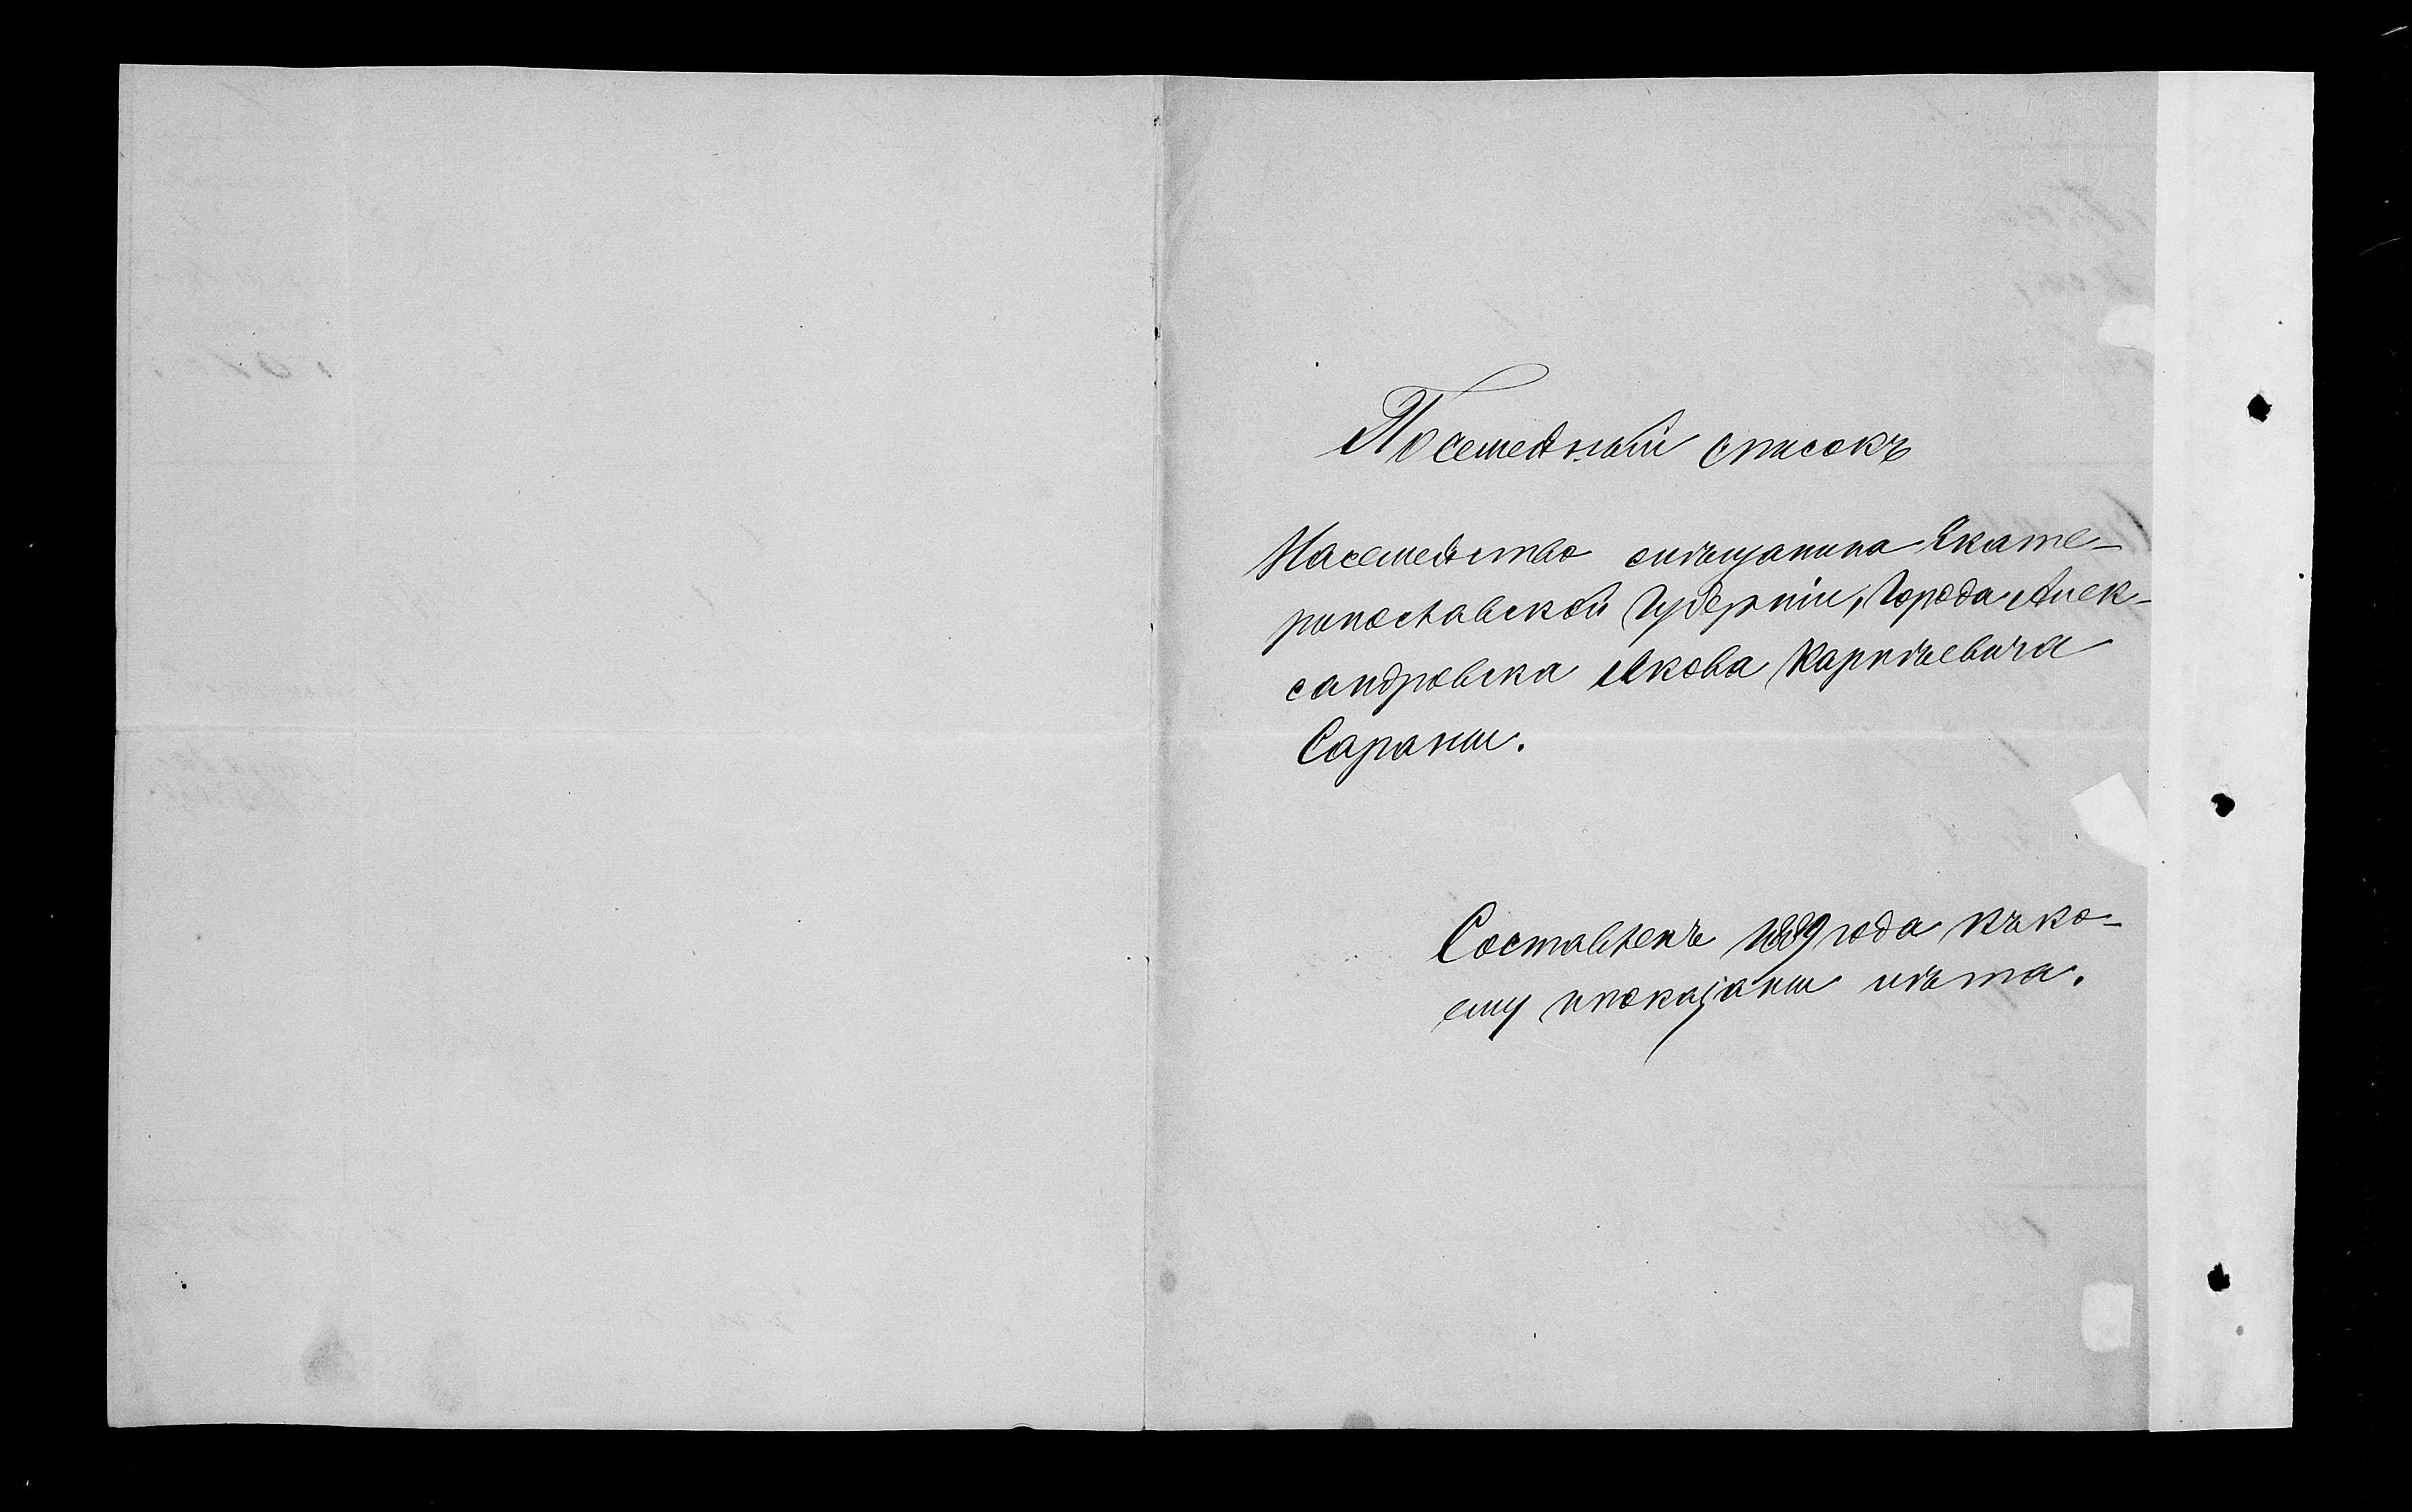 Посемейный списокъ
На семейство мѣщанина Екате-
ринославской Губерніи, Города Алек-
сандровска Якова Карпѣевича
Сарани.
Составленъ 1889 года къ ко-
ему и показани лѣта.